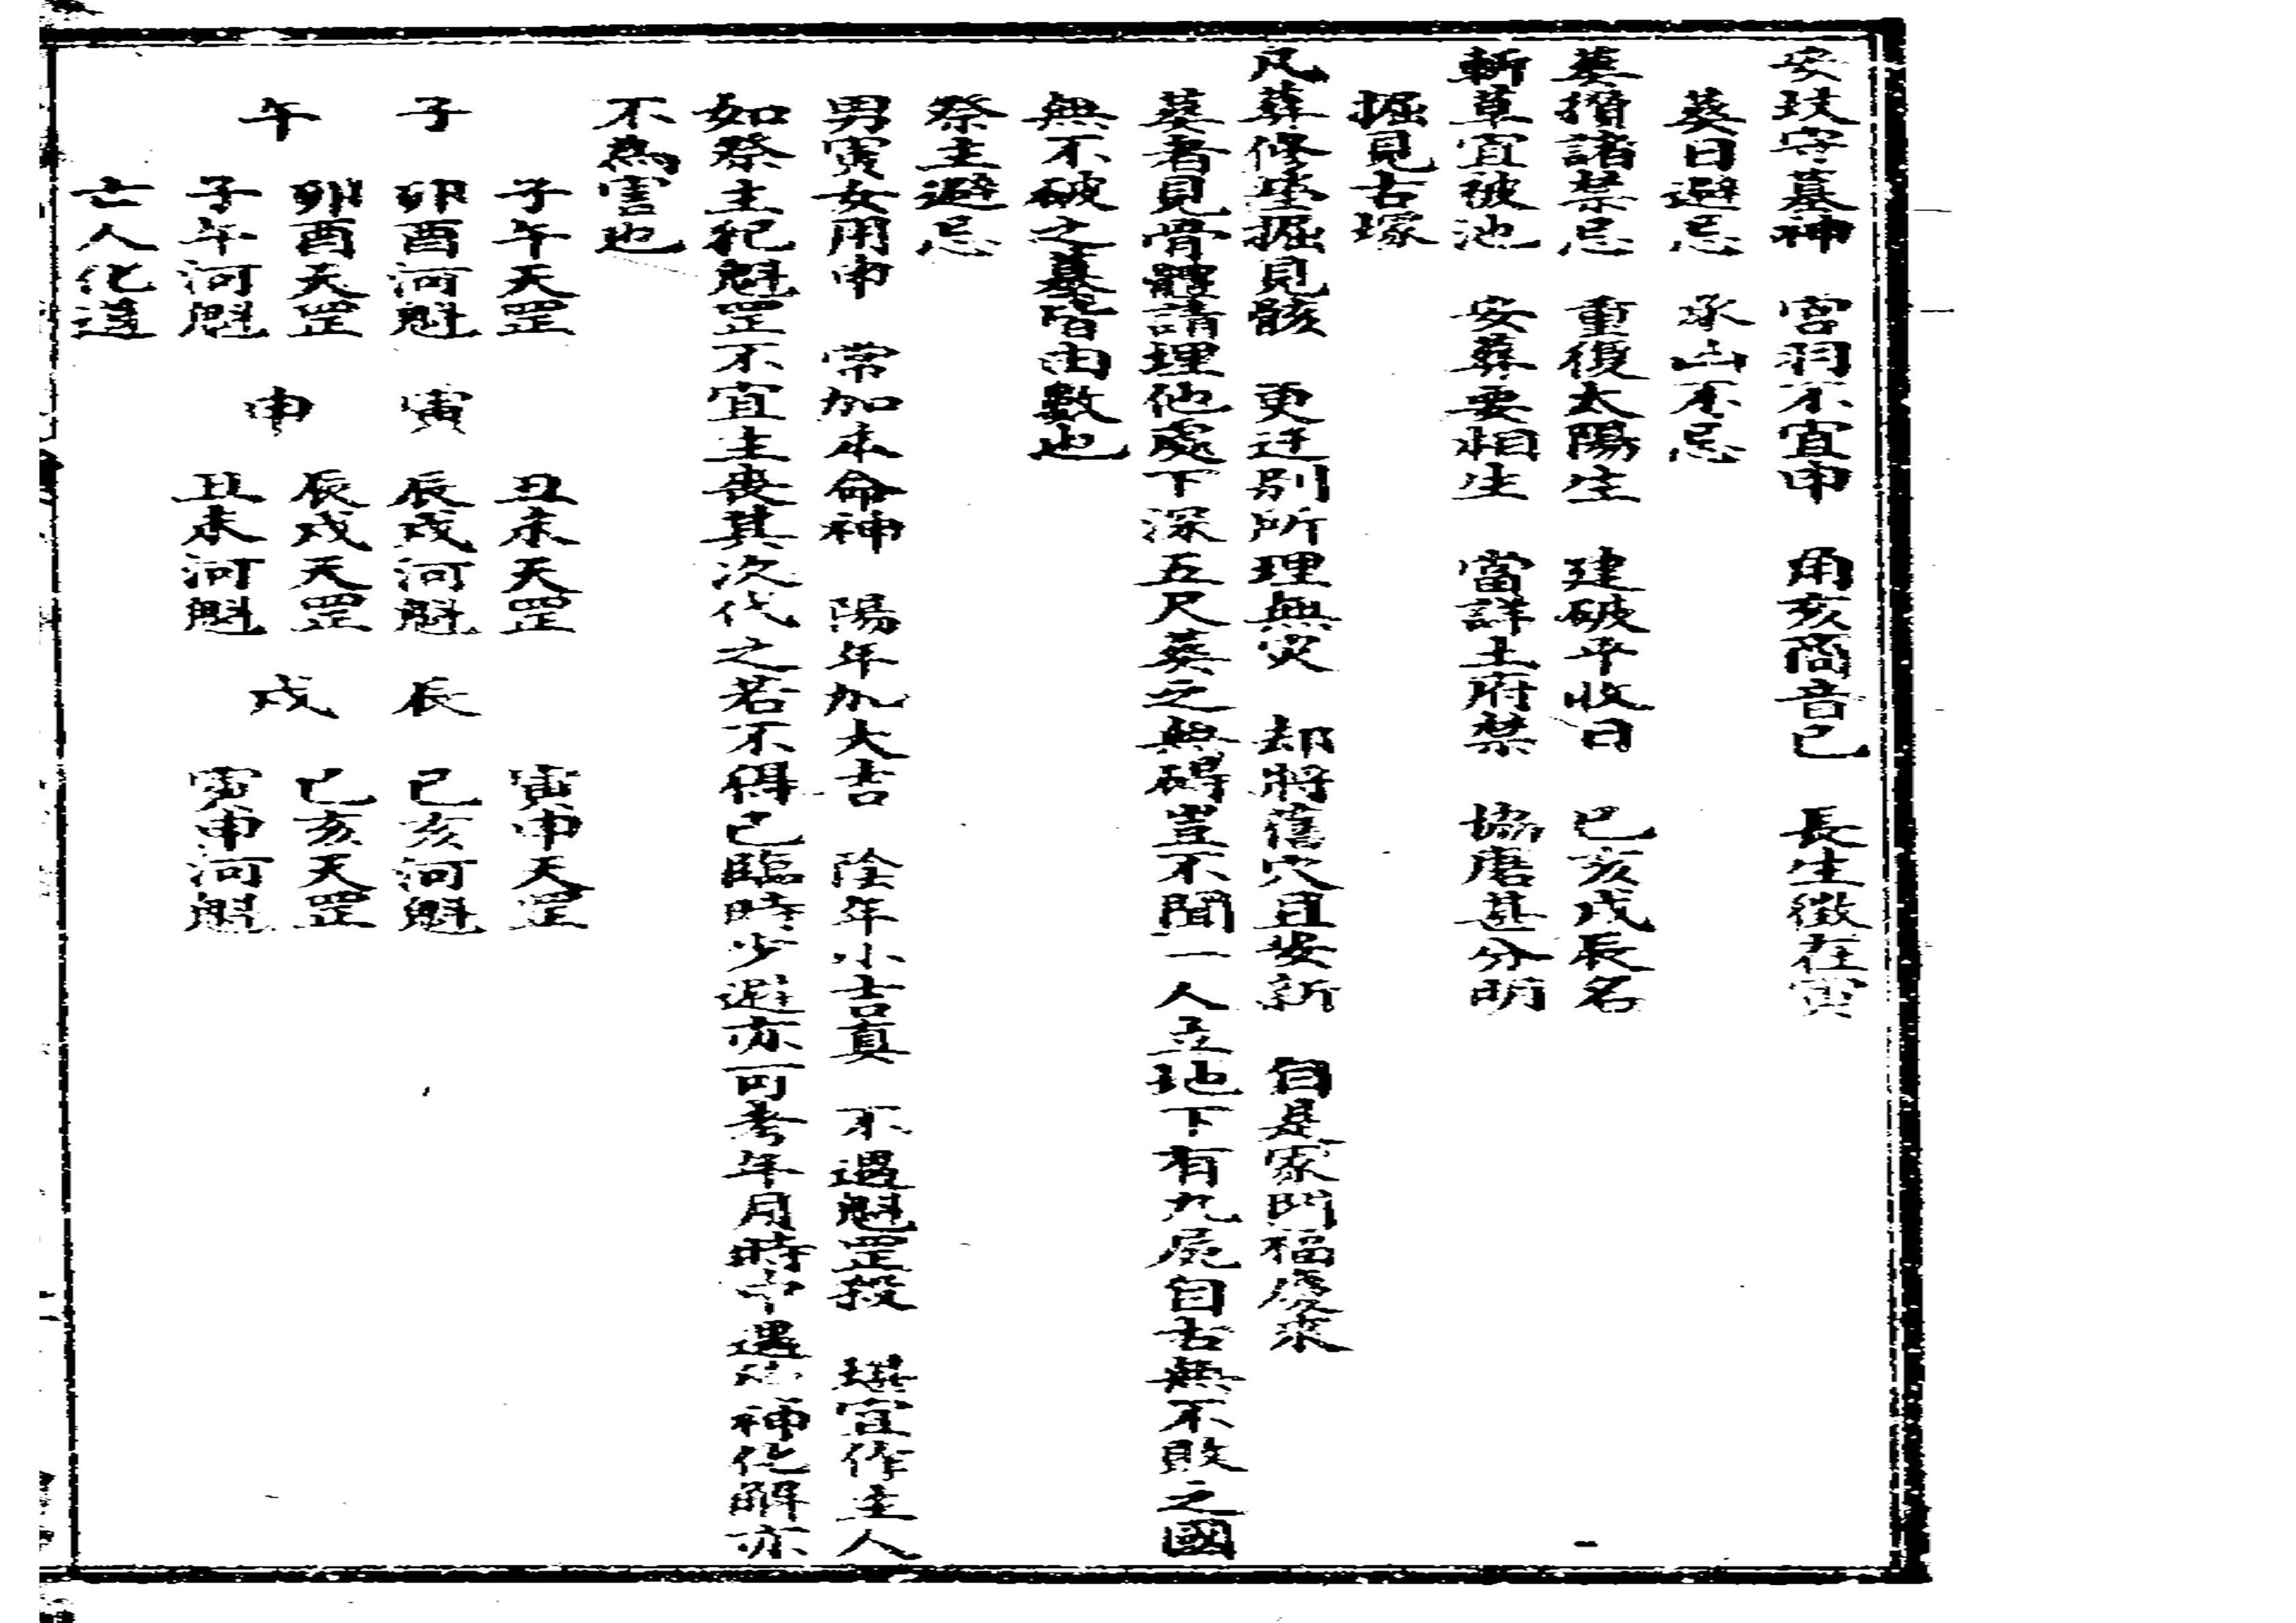 安玟守墓神　宮羽不宜申　角亥商音巳　長生徵在寅
葵日避忌　承山不忌
葵揩諸禁忌　重復太陽生　建破平收日　巳亥戌辰名
斬草宜被池　安葬要相生　當詳土府禁　協唐甚分明
掘見古塚
凡葬修塋掘見骸　更迁別所理無災　却將舊穴且安新　自是家門福慶來
葵者見骨體請埋他處下深五尺葵之無碍豈不聞一人立地下有九屍自古無不敗之國
無不破之墓皆由數也
祭主避忌
男寅女用申　常加本命神　陽年加大吉　陰年小吉真　不遇魁罡投　堪宜作主人
如祭主犯魁罡不宜主喪其次代之若不得已臨時少避亦可考年月時中遇神化解亦
不為害也
子午天罡　丑未天罡　寅申天罡
子　卯酉河魁　寅　辰戌河魁　辰　巳亥河魁
午　卯酉天罡　申　辰戌天罡　戌　巳亥天罡
子午河魁　丑未河魁　寅申河魁
亡人化道